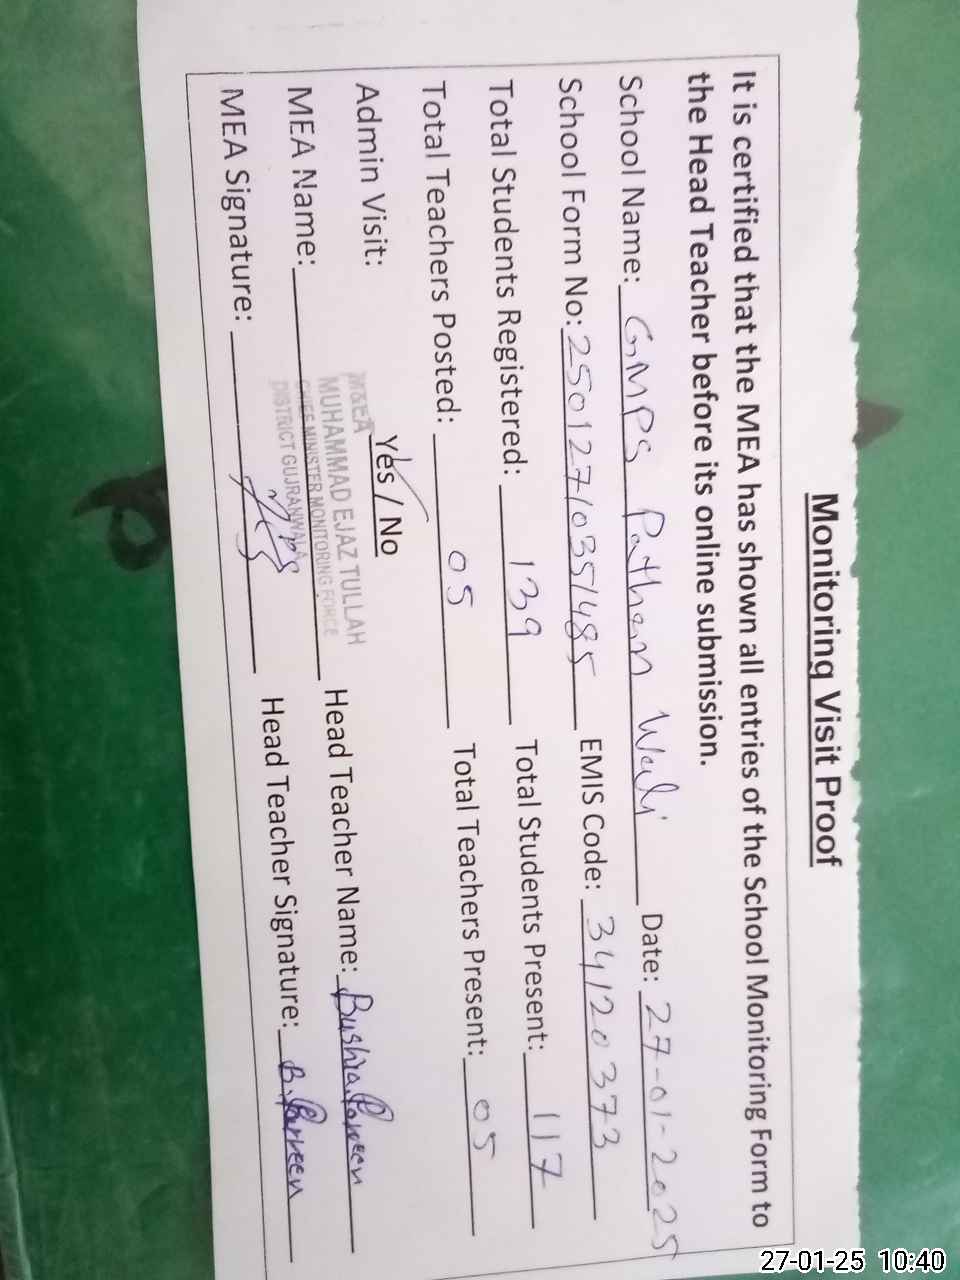 Monitoring Visit Proof
It is certified that the MEA has shown all entries of the School Monitoring Form to
the Head Teacher before its online submission.
School Name: GMPS Pathan Wali Date: 27-01-2025
School Form No: 250127103514185 EMIS Code: 34120373
Total Students Registered: 139 Total Students Present: 117
Total Teachers Posted: 05 Total Teachers Present: 05
Admin Visit: Yes / No
M&EA
MUHAMMAD EJAZ TULLAH
CHIEF MINISTER MONITORING FORCE
DISTRICT GUJRANWALA
MEA Name: Head Teacher Name: Bushra Parveen
MEA Signature: Head Teacher Signature: B. Parveen
27-01-25 10:40